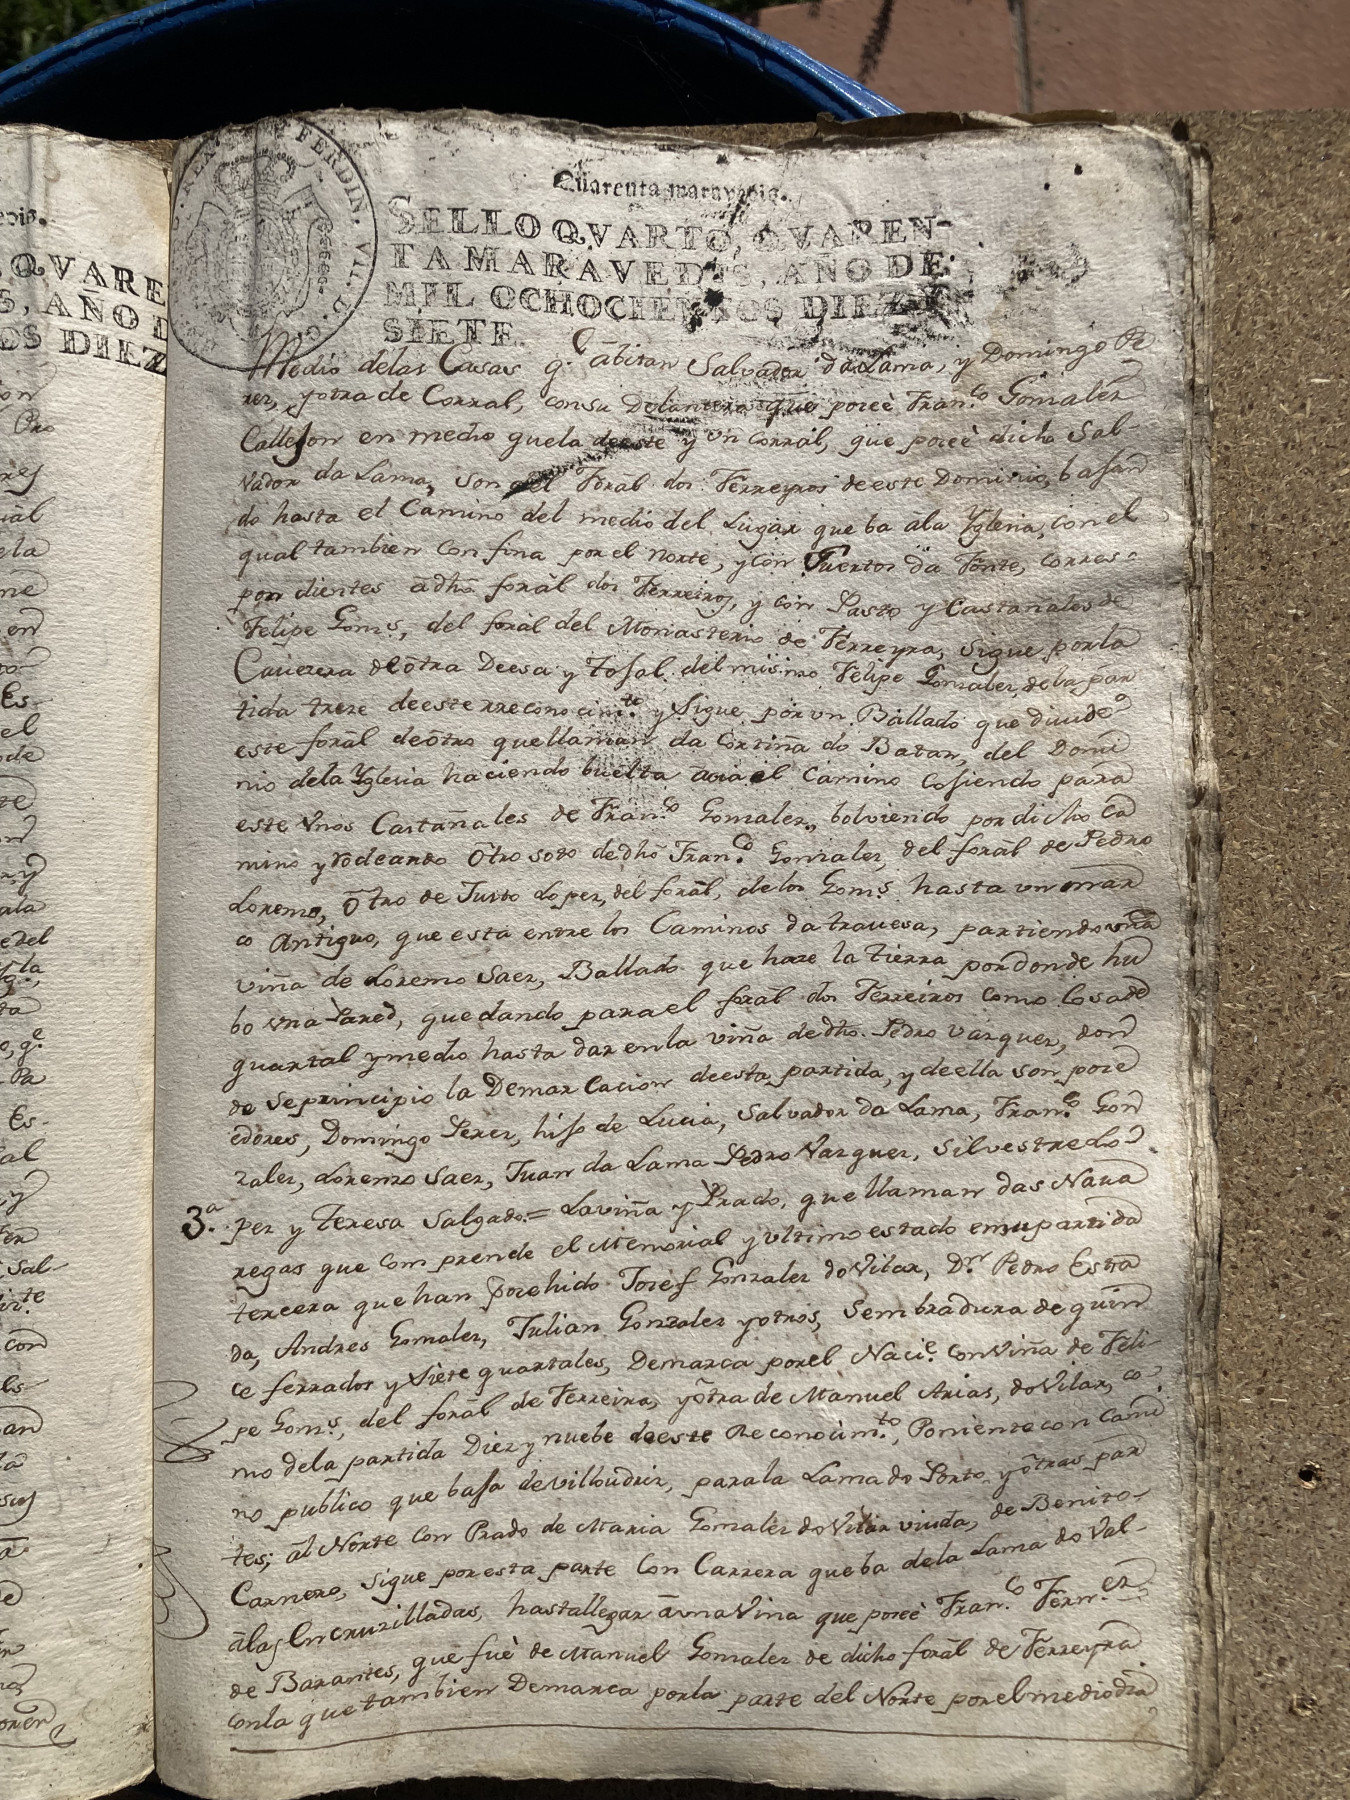 Quarenta maravedis.
SELLO QVARTO, QVAREN-
TA MARAVEDIS, AÑO DE
MIL OCHOCIENTOS DIEZ Y
SIETE.
FERDIN. VII. D. G.
Medio delas Casas q.e ābitan Salvador da Lama, y Domingo Pe
rez, yotra de Corral, consu Delantera que poreè Fran.co Gonzalez
Callejon en medio guela deeste y vn Corral, que poreè dicho Sal-
vador da Lama, son del Forāl dos Ferreyros deeste Dominio, bajan
do hasta el Camino del medio del Lugar que ba āla Yglesia, con el
qual tambien confina por el norte, y con Tuertos da Fonte, corres-
pondientes ādho forāl dos Ferreiros, y con Pasto y Castañales de
Felipe Gom.s, del forāl del Monasterio de Ferreyra, sigue porla
Cauecera de ōtra Deesa y tojal del mismo Felipe Gonzalez, dela par
tida treze deeste rreconocim.to y sigue por vn Ballado que diuide
este forāl de ōtro quellaman da Cortiña do Batan, del Domi
nio dela Yglesia haciendo buelta āciael Camino cojiendo para
este vnos Castañales de Fran.co Gonzalez, bolviendo por dicho Ca
mino y rodeando ōtro soto dedho Fran.co Gonzalez, del forāl de Pedro
Lorenzo, ōtro de Justo Lopez, del forāl, delos Gom.s hasta vn mar
co Antiguo, que está entre los Caminos da trauesa, partiendo vna
viña de Lorenzo Saez, Ballado que haze la tierra pordonde hu
bo vna Pared, quedando parael forāl dos Ferreiros como losade
quartal ymedio hasta dar enla viña dedho Pedro Vazquez, don
de seprincipio la Demarcacion deesta partida, y deella son poree
edores, Domingo Perez, hijo de Lucia, Salvador da Lama, Fran.co Gon
zalez, Lorenzo Saez, Juan da Lama Pedro Vazquez, Silvestre Lo
3.a pez y Teresa Salgado.= Laviña y Prado, que llaman das Naua
regas que comprende el Memorial y vltimo estado ensupartida
tercera que han porehido Josef Gonzalez do Vilar, D.n Pedro Estra
da, Andres Gonzalez, Julian Gonzalez yotros, sembradura de quin
ce ferrados y siete quartales, Demarca porel Naci.e con Viña de Feli-
pe Gom.s, del forāl de Ferreira, y ōtra de Manuel Arias, do Vilar, co-
mo dela partida Diez y nuebe deeste Reconocim.to, Poniente con Cami
no publico que baja devilloudriz, parala Lama do Porto y ōtras par
tes; āl Norte con Prado de Maria Gonzalez do Vilar viuda, de Benito
Carnero, sigue poresta parte Con Carrera queba dela Lama do Val-
ālas Encruzilladas, hastallegar āvna Viña que poreè Fran.co Fern.ez
de Barantes, que fuè de Manuel Gonzalez de dicho forāl de Ferreyra
conla que tambien Demarca porla parte del Norte porelmediodia